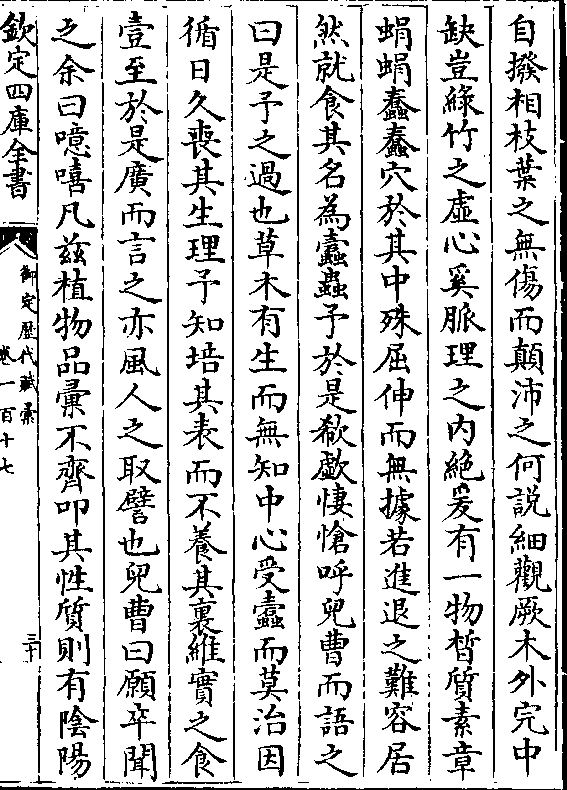 自撥相枝葉之無傷而顛沛之何説細觀厥木外完中
缺豈綠竹之虛心奚脈理之内絶爰有一物皙質素章
蜎蜎蠢蠢穴於其中殊屈伸而無據若進退之難容居
然就食其名為蠧蟲予於是欷歔悽愴呼兒曹而語之
曰是予之過也草木有生而無知中心受蠧而莫治因
循日久喪其生理予知培其表而不養其裏維實之食
壹至於是廣而言之亦風人之取譬也兒曹曰願卒聞
之余曰噫嘻凡茲植物品彚不齊叩其性質則有陰陽
欽定四庫全書
御定歴代賦彚
卷一百十七
三十